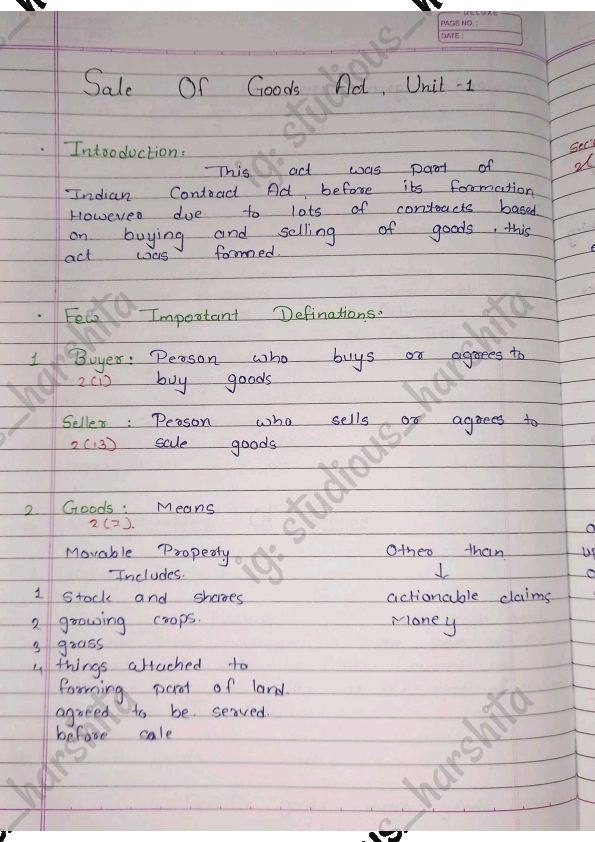 DELUXE
PAGE NO.:
DATE:
Sale Of Goods Act, Unit-1
Introduction:
This act was part of
Indian Contract Act, before its formation
However due to lots of contracts based
on buying and selling of goods, this
act was formed.
Few Important Definations:
1 Buyer: Person who buys or agrees to
2(1) buy goods
Seller: Person who sells or agrees to
2(13) sale goods
2 Goods: Means
2(7).
Movable Property. Other than
Includes. ↓
1 Stock and shares actionable claims
2 growing crops. Money
3 grass
4 things attached to
forming part of land.
agreed to be served.
before sale
ig: studious_harshita
ig: studious_harshita